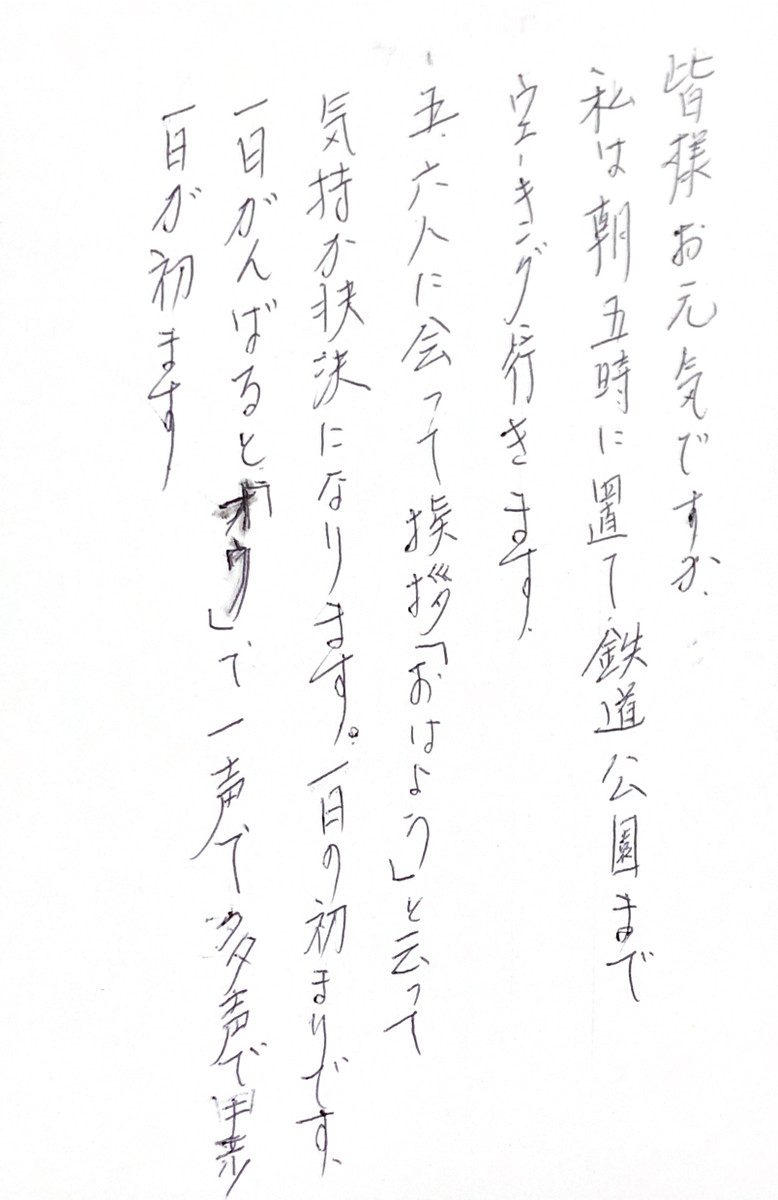 皆様お元気ですか、
私は朝五時に置て鉄道公園まで
ウェーキング行きます、
五、六人に会って挨拶「おはよう」と云って
気持か挾決になります。一日の初まりです、
一日がんばると「オウ」で一声で多声で
一日が初ます